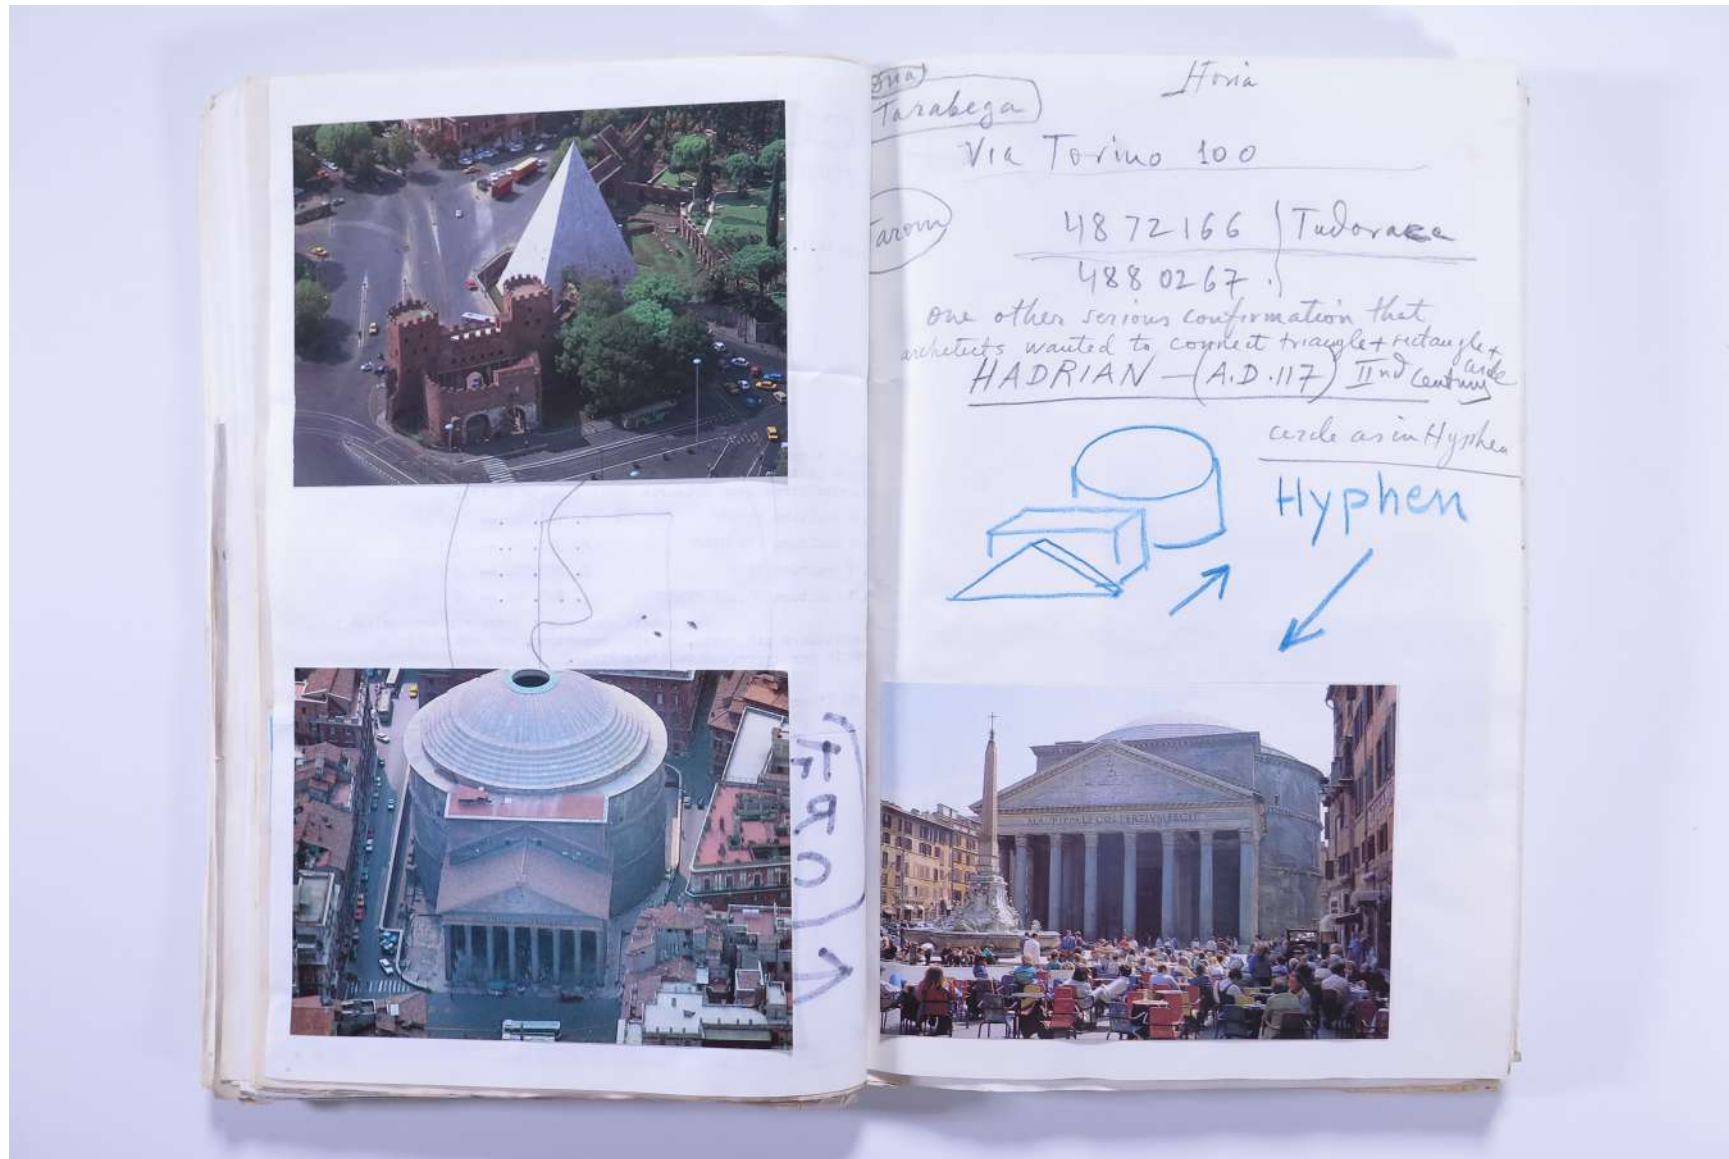 Horia
Tarabega
Via Torino 100
Tarom
48 72 166 Tudorache
488 02 67.
one other serious confirmation that
architects wanted to connect triangle + rectangle +
circle
HADRIAN – (A.D. 117) IInd century
cercle as in Hyphen
Hyphen